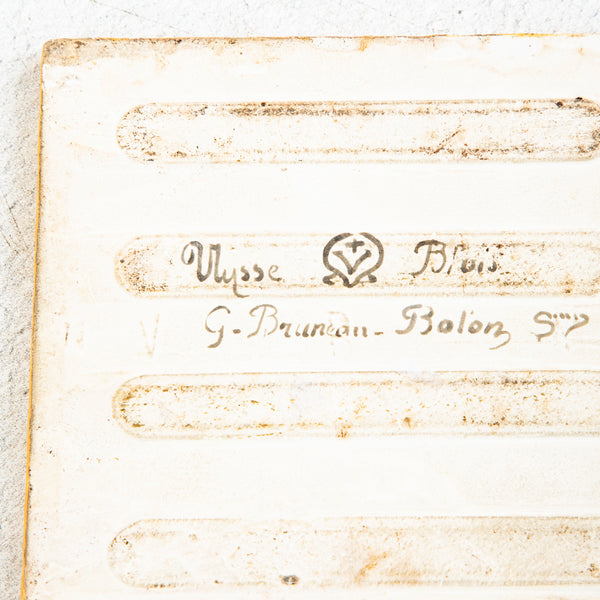 Ulysse Blois
G-Bruneau-Balon